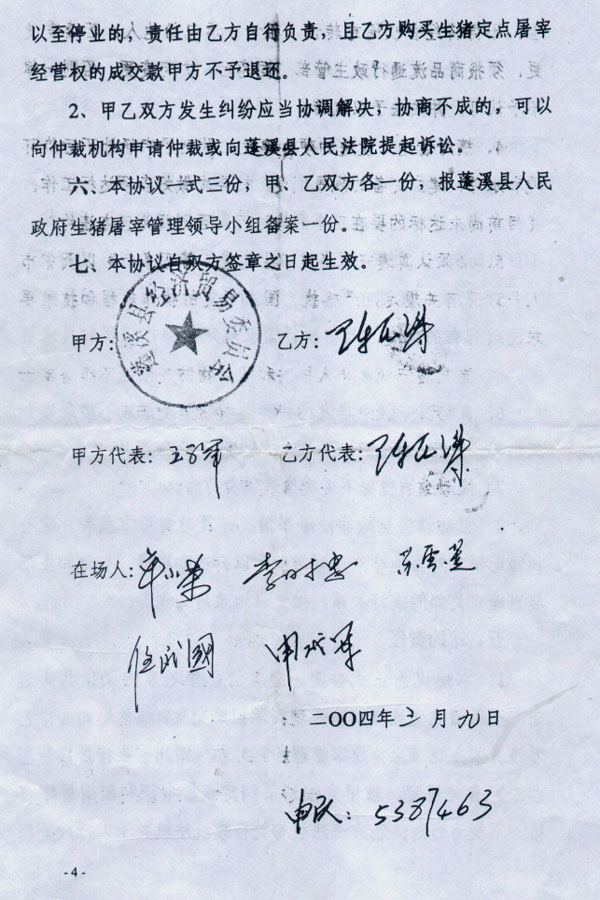 以至停业的，责任由乙方自行负责，且乙方购买生猪定点屠宰
经营权的成交款甲方不予退还。
2、甲乙双方发生纠纷应当协调解决；协商不成的，可以
向仲裁机构申请仲裁或向蓬溪县人民法院提起诉讼。
六、本协议一式三份，甲、乙双方各一份，报蓬溪县人民
政府生猪屠宰管理领导小组备案一份。
七、本协议自双方签章之日起生效。
蓬溪县经济贸易委员会
甲方：
乙方：
甲方代表：
乙方代表：
在场人：
二〇〇四年三月九日
5387463
-4-